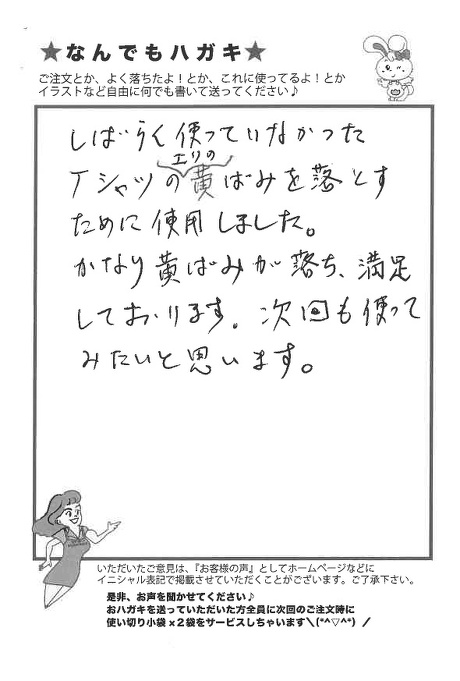 ★なんでもハガキ★
ご注文とか、よく落ちたよ！とか、これに使ってるよ！とか
イラストなど自由に何でも書いて送ってください♪
しばらく使っていなかった
エリの
Tシャツの黄ばみを落とす
ために使用しました。
かなり黄ばみが落ち、満足
しております。次回も使って
みたいと思います。
いただいたご意見は、『お客様の声』としてホームページなどに
イニシャル表記で掲載させていただくことがございます。ご了承下さい。
是非、お声を聞かせてください♪
おハガキを送っていただいた方全員に次回のご注文時に
使い切り小袋×2袋をサービスしちゃいます＼(*^▽^*)／